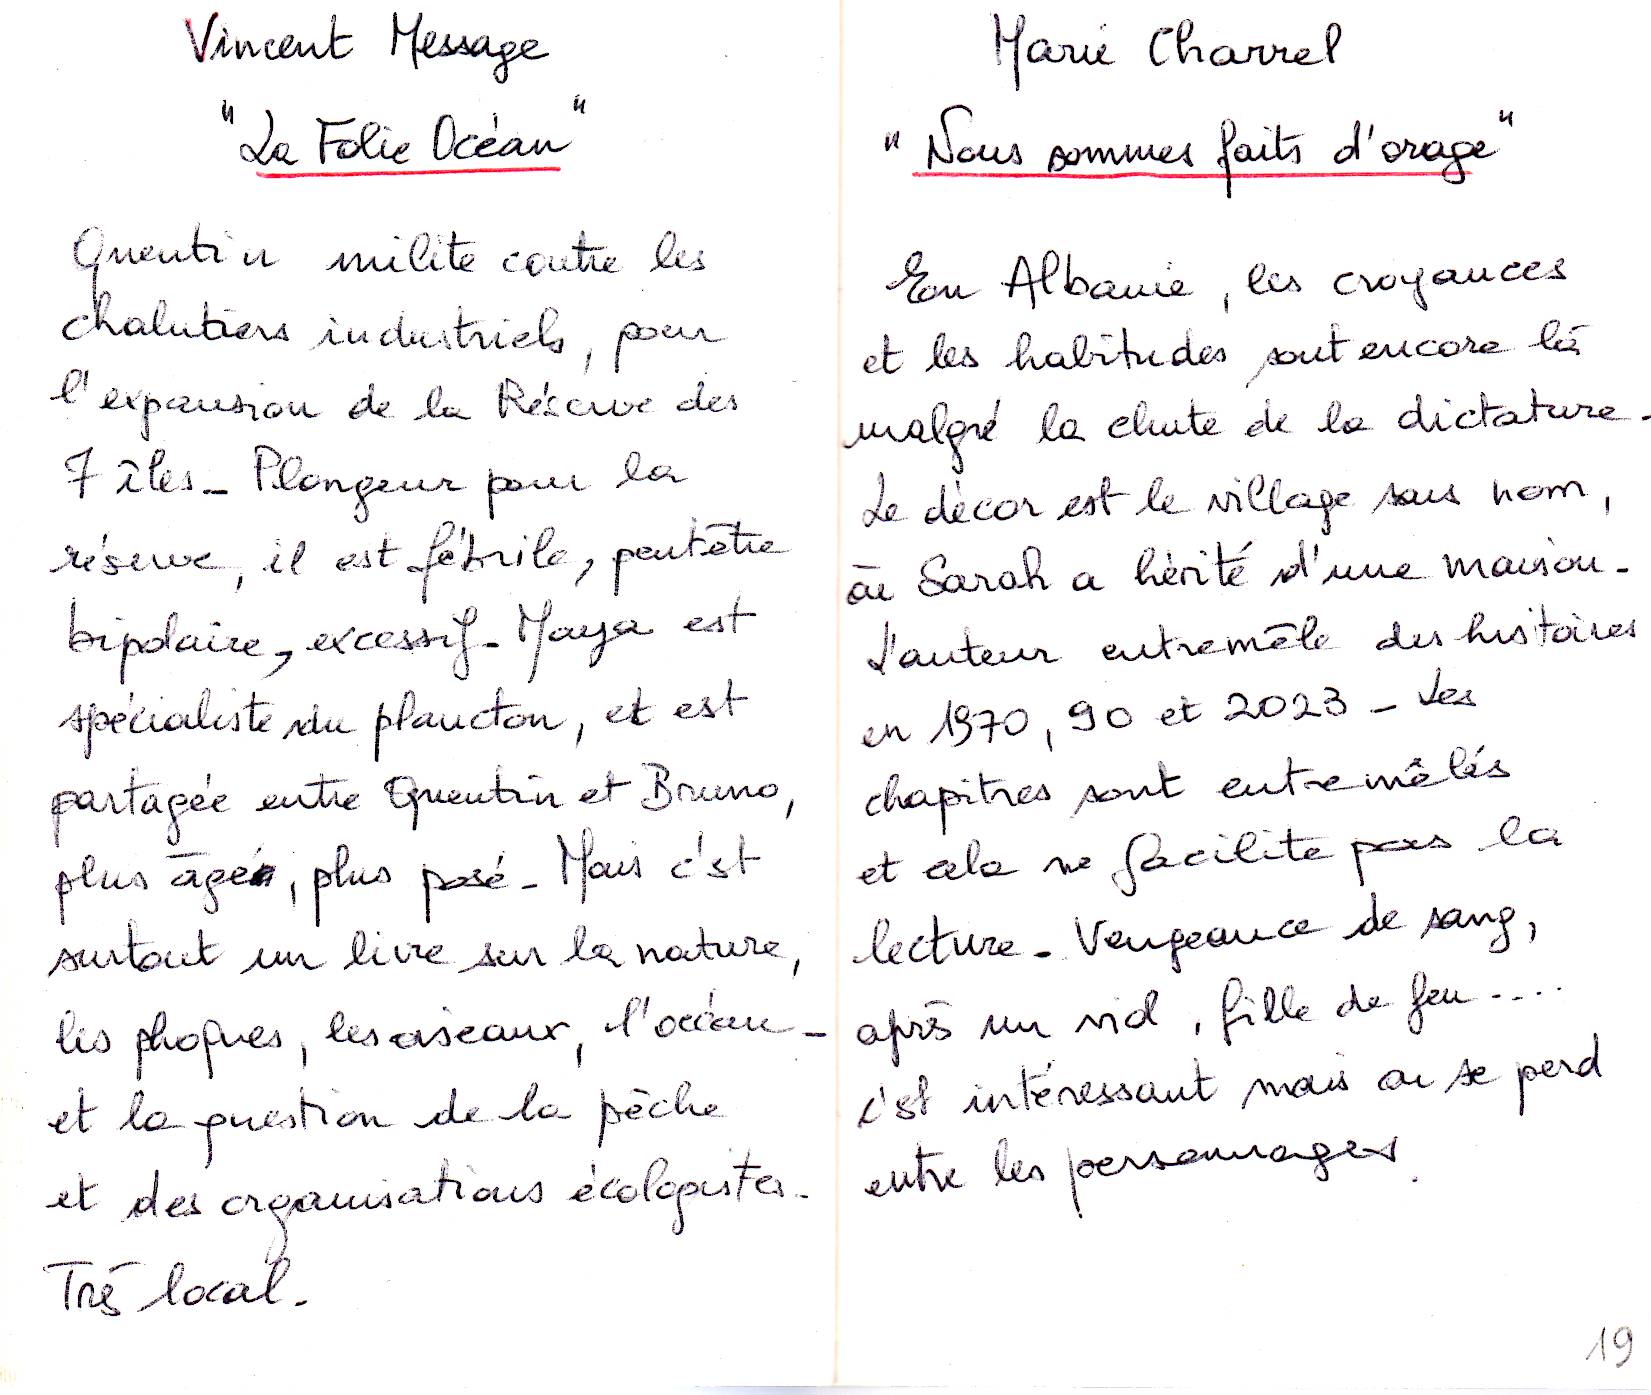 Vincent Message
"La Folie Océan"
Quentin milite contre les
chalutiers industriels, pour
l'expansion de la Réserve des
7 îles - Plongeur pour la
réserve, il est fébrile, peut être
bipolaire, excessif - Maya est
spécialiste du plancton, et est
partagée entre Quentin et Bruno,
plus âgé, plus posé - Mais c'est
surtout un livre sur la nature,
les phoques, les oiseaux, l'océan -
et la question de la pêche
et des organisations écologistes -
Très local -
Marie Charrel
"Nous sommes faits d'orage"
En Albanie, les croyances
et les habitudes sont encore là
malgré la chute de la dictature -
Le décor est le village sans nom,
où Sarah a hérité d'une maison -
L'auteur entremêle des histoires
en 1970, 90 et 2023 - Les
chapitres sont entremêlés
et cela ne facilite pas la
lecture - Vengeance de sang,
après un viol, fille de feu ....
c'est intéressant mais on se perd
entre les personnages.
19